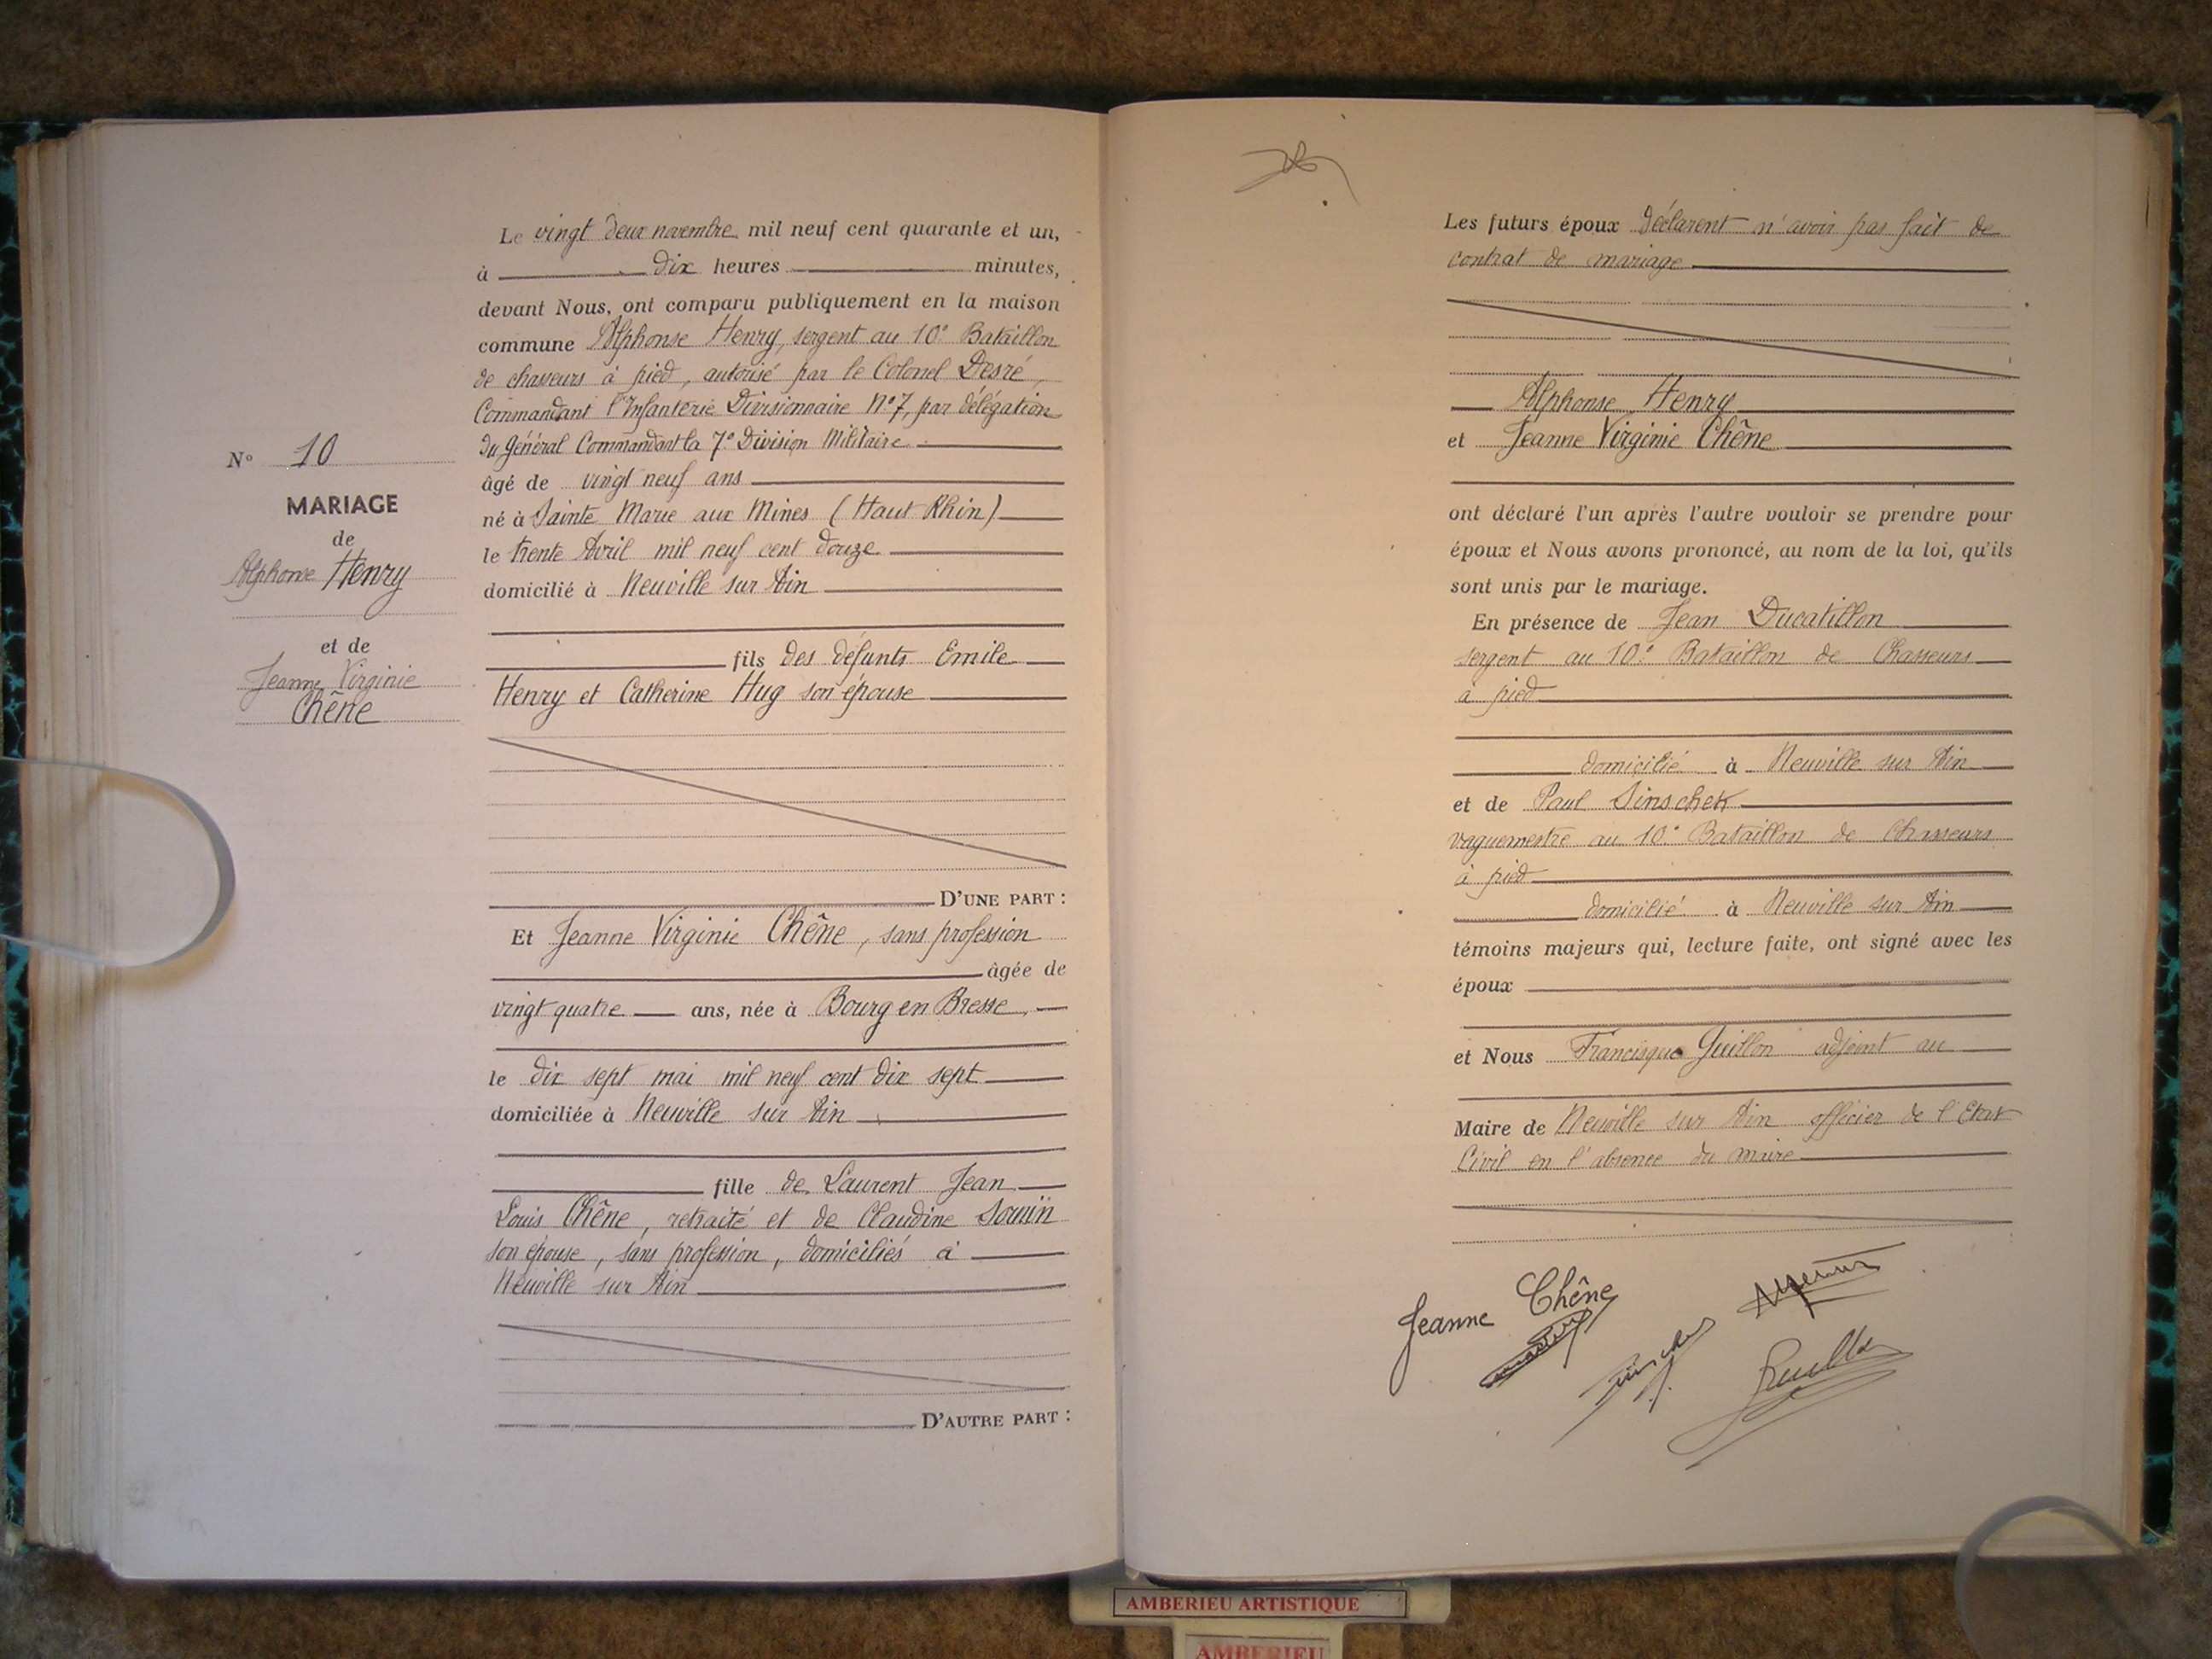 N° 10
MARIAGE
de
Alphonse Henry
et de
Jeanne Virginie
Chêne
Le vingt deux novembre mil neuf cent quarante et un,
à dix heures minutes,
devant Nous, ont comparu publiquement en la maison
commune Alphonse Henry, sergent au 10e Bataillon
de chasseurs à pied, autorisé par le Colonel Desré,
Commandant l'Infanterie Divisionnaire N°7, par délégation
du Général Commandant la 7e Division Militaire
âgé de vingt neuf ans
né à Sainte Marie aux Mines (Haut Rhin)
le trente Avril mil neuf cent douze
domicilié à Neuville sur Ain
fils des défunts Emile
Henry et Catherine Hug son épouse
D'UNE PART :
Et Jeanne Virginie Chêne, sans profession
âgée de
vingt quatre ans, née à Bourg en Bresse,
le dix sept mai mil neuf cent dix sept
domiciliée à Neuville sur Ain
fille de Laurent Jean
Louis Chêne, retraité et de Claudine
son épouse, sans profession, domiciliés à
Neuville sur Ain
D'AUTRE PART :
Les futurs époux déclarent n'avoir pas fait de
contrat de mariage
Alphonse Henry
et Jeanne Virginie Chêne
ont déclaré l'un après l'autre vouloir se prendre pour
époux et Nous avons prononcé, au nom de la loi, qu'ils
sont unis par le mariage.
En présence de Jean Ducatillon
sergent au 10e Bataillon de Chasseurs
à pied
domicilié à Neuville sur Ain
et de Paul
vaguemestre au 10e Bataillon de Chasseurs
à pied
domicilié à Neuville sur Ain
témoins majeurs qui, lecture faite, ont signé avec les
époux
et Nous Francisque Guillon adjoint au
Maire de Neuville sur Ain officier de l'Etat
Civil en l'absence du maire
Jeanne Chêne
AMBERIEU ARTISTIQUE
AMBERIEU